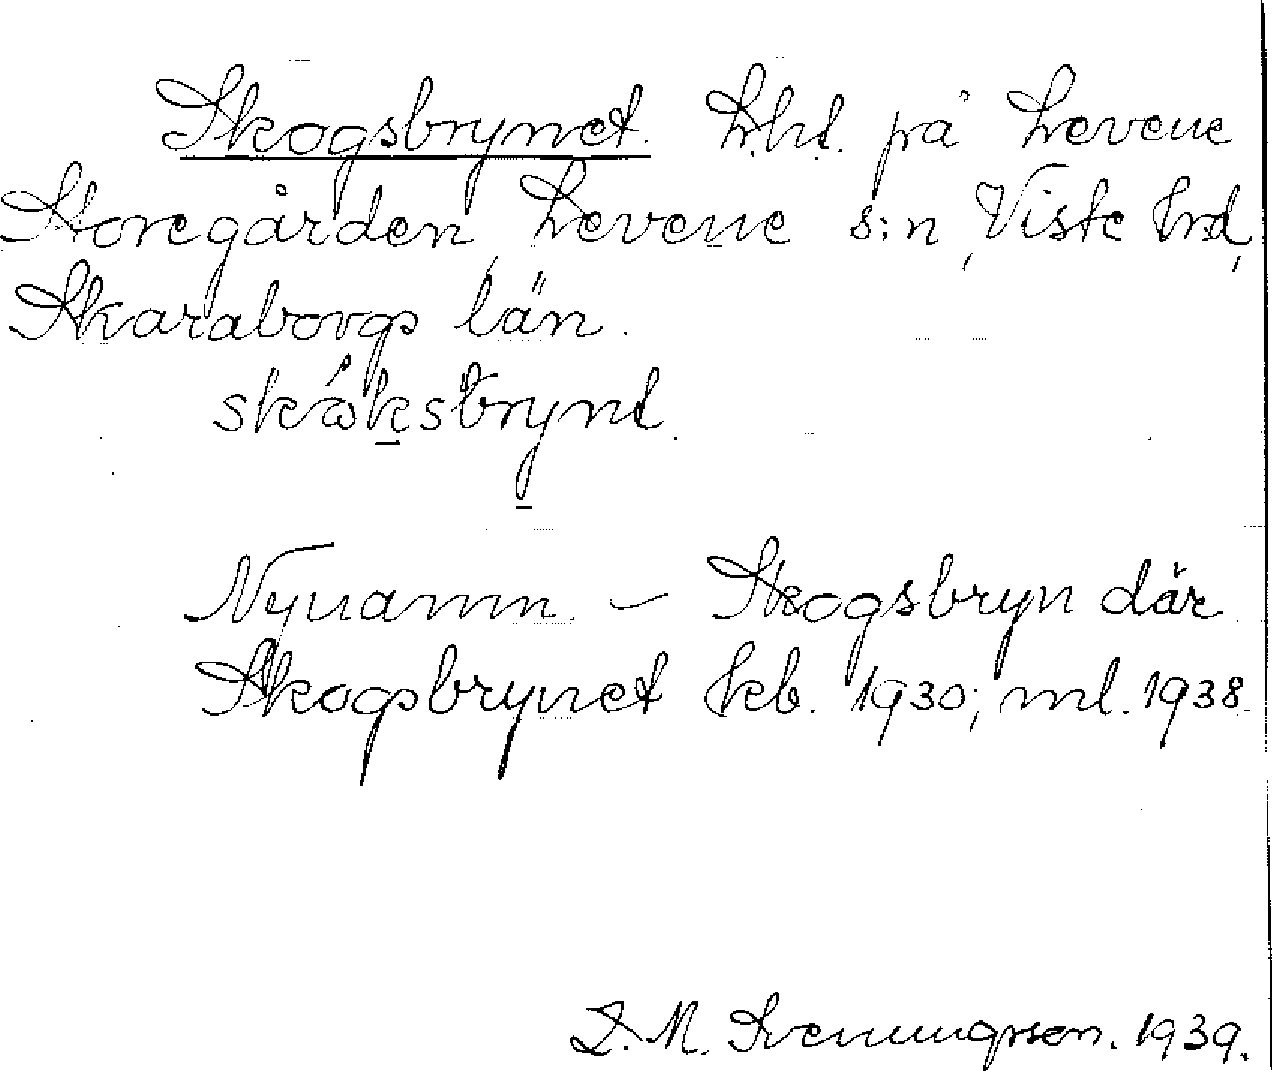 Skogsbrynet. Lht. på Levene
Storegården, Levene s:n, Viste hd,
Skaraborgs län.
skåksbrynt.
Nynamn. – Skogsbryn där
Skogsbrynet beb. 1930; ml. 1938.
L. M. Svenungsson. 1939.